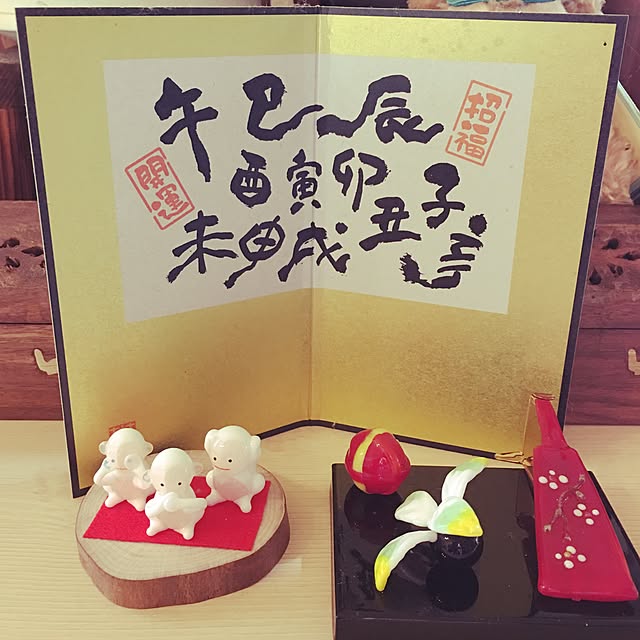 招福
午巳辰
酉寅卯
未申戌丑子亥
開運